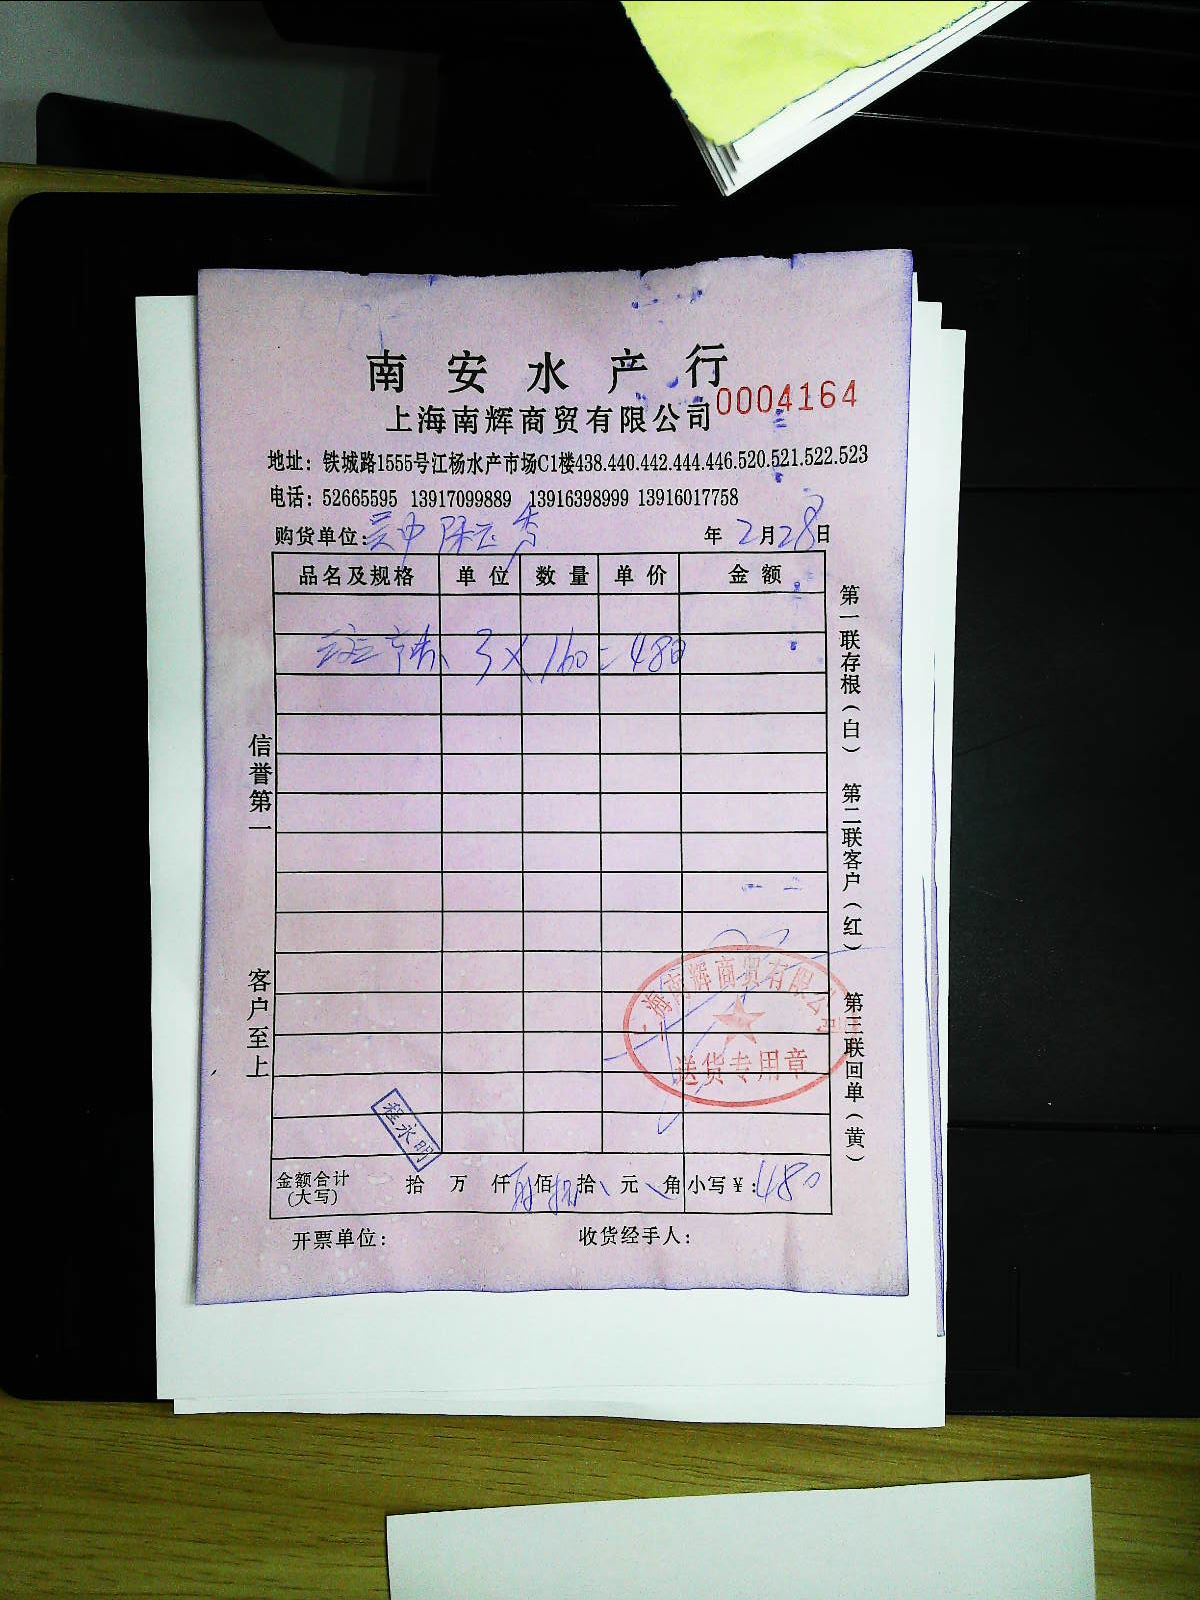 南安水产行
上海南辉商贸有限公司 0004164
地址：铁城路1555号江杨水产市场C1楼438.440.442.444.446.520.521.522.523
电话：52665595 13917099889 13916398999 13916017758
购货单位： 年 2月28日
品名及规格 单位 数量 单价 金额
3×160=480
信誉第一
客户至上
第一联存根（白） 第二联客户（红） 第三联回单（黄）
上海南辉商贸有限公司
送货专用章
程永明
金额合计（大写） 拾 万 仟 佰 拾 元 角 小写￥：480
开票单位： 收货经手人：